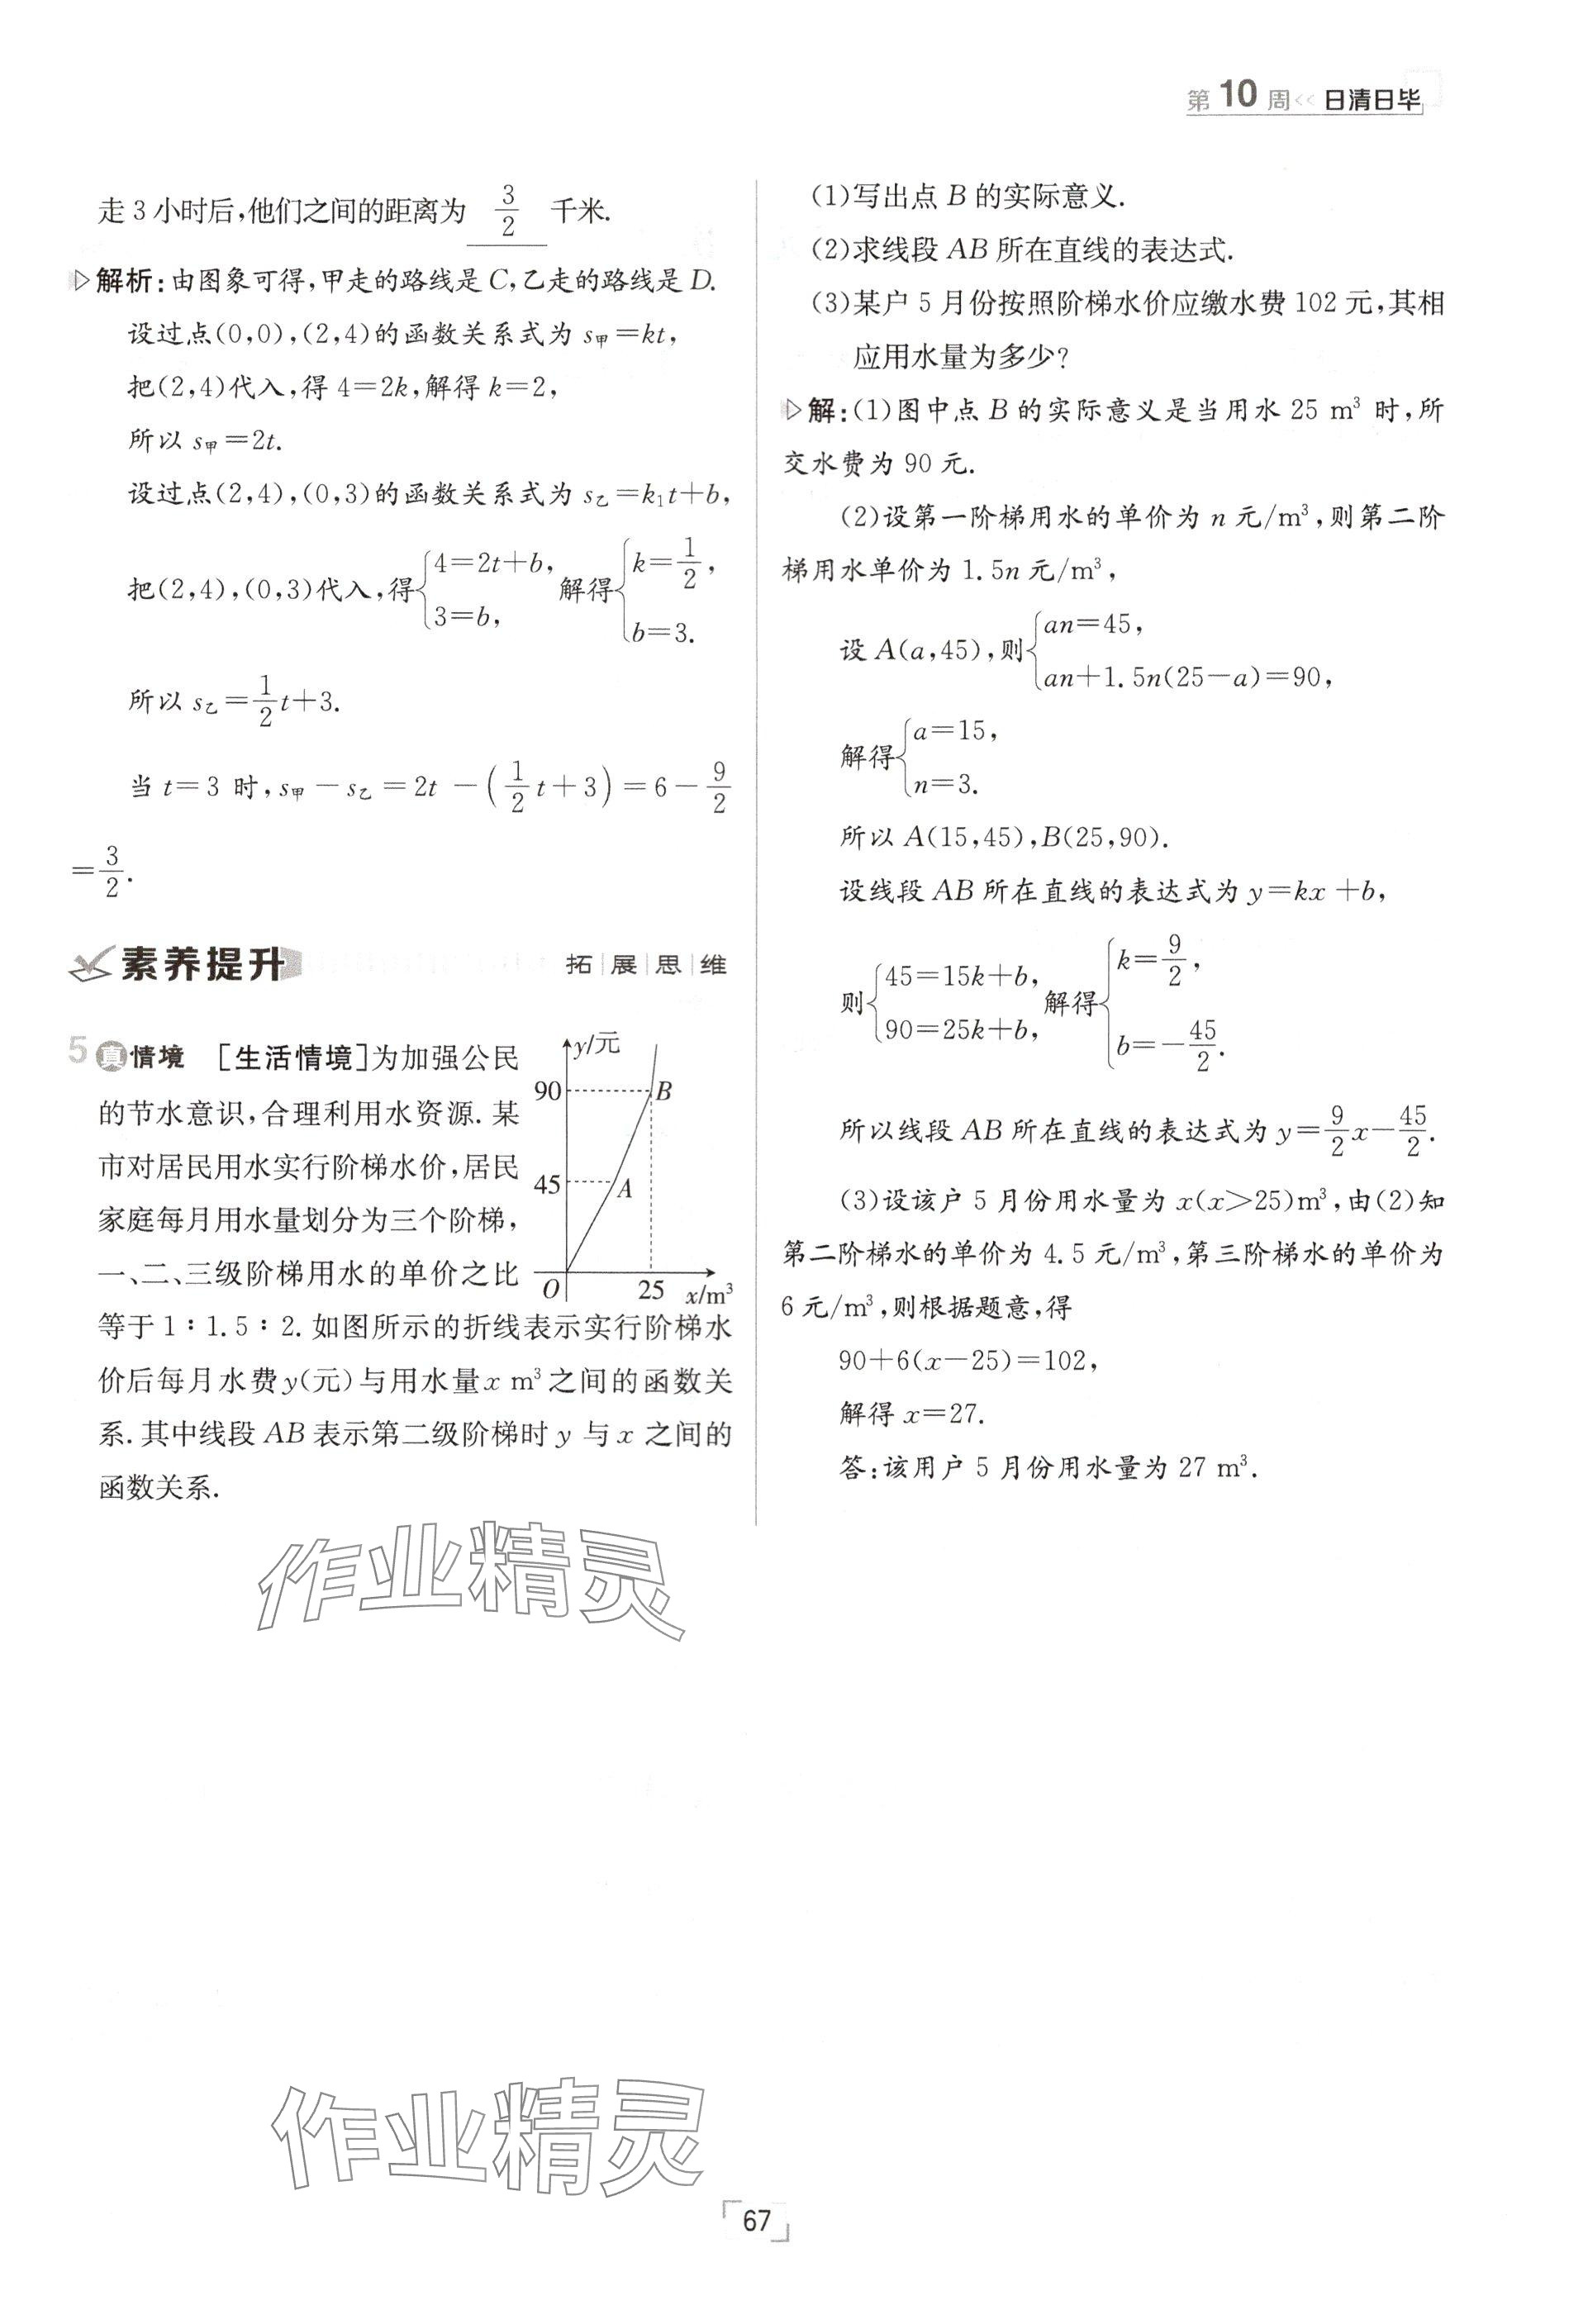 第 10 周 << 日清日毕
走 3 小时后,他们之间的距离为 3/2 千米.
▷解析:由图象可得,甲走的路线是 C,乙走的路线是 D.
设过点(0,0),(2,4)的函数关系式为 s甲=kt,
把(2,4)代入,得 4=2k,解得 k=2,
所以 s甲=2t.
设过点(2,4),(0,3)的函数关系式为 s乙=k₁t+b,
把(2,4),(0,3)代入,得{4=2t+b, 3=b, 解得{k=1/2, b=3.
所以 s乙=1/2t+3.
当 t=3 时,s甲-s乙=2t-(1/2t+3)=6-9/2
=3/2.
素养提升 拓|展|思|维
5 真情境 [生活情境]为加强公民
的节水意识,合理利用水资源.某
市对居民用水实行阶梯水价,居民
家庭每月用水量划分为三个阶梯,
一、二、三级阶梯用水的单价之比
等于 1∶1.5∶2.如图所示的折线表示实行阶梯水
价后每月水费 y(元)与用水量 x m³ 之间的函数关
系.其中线段 AB 表示第二级阶梯时 y 与 x 之间的
函数关系.
y/元
90
B
45
A
O
25
x/m³
(1)写出点 B 的实际意义.
(2)求线段 AB 所在直线的表达式.
(3)某户 5 月份按照阶梯水价应缴水费 102 元,其相
应用水量为多少?
▷解:(1)图中点 B 的实际意义是当用水 25 m³ 时,所
交水费为 90 元.
(2)设第一阶梯用水的单价为 n 元/m³,则第二阶
梯用水单价为 1.5n 元/m³,
设 A(a,45),则{an=45, an+1.5n(25-a)=90,
解得{a=15, n=3.
所以 A(15,45),B(25,90).
设线段 AB 所在直线的表达式为 y=kx+b,
则{45=15k+b, 90=25k+b, 解得{k=9/2, b=-45/2.
所以线段 AB 所在直线的表达式为 y=9/2x-45/2.
(3)设该户 5 月份用水量为 x(x>25)m³,由(2)知
第二阶梯水的单价为 4.5 元/m³,第三阶梯水的单价为
6 元/m³,则根据题意,得
90+6(x-25)=102,
解得 x=27.
答:该用户 5 月份用水量为 27 m³.
作业精灵
作业精灵
67